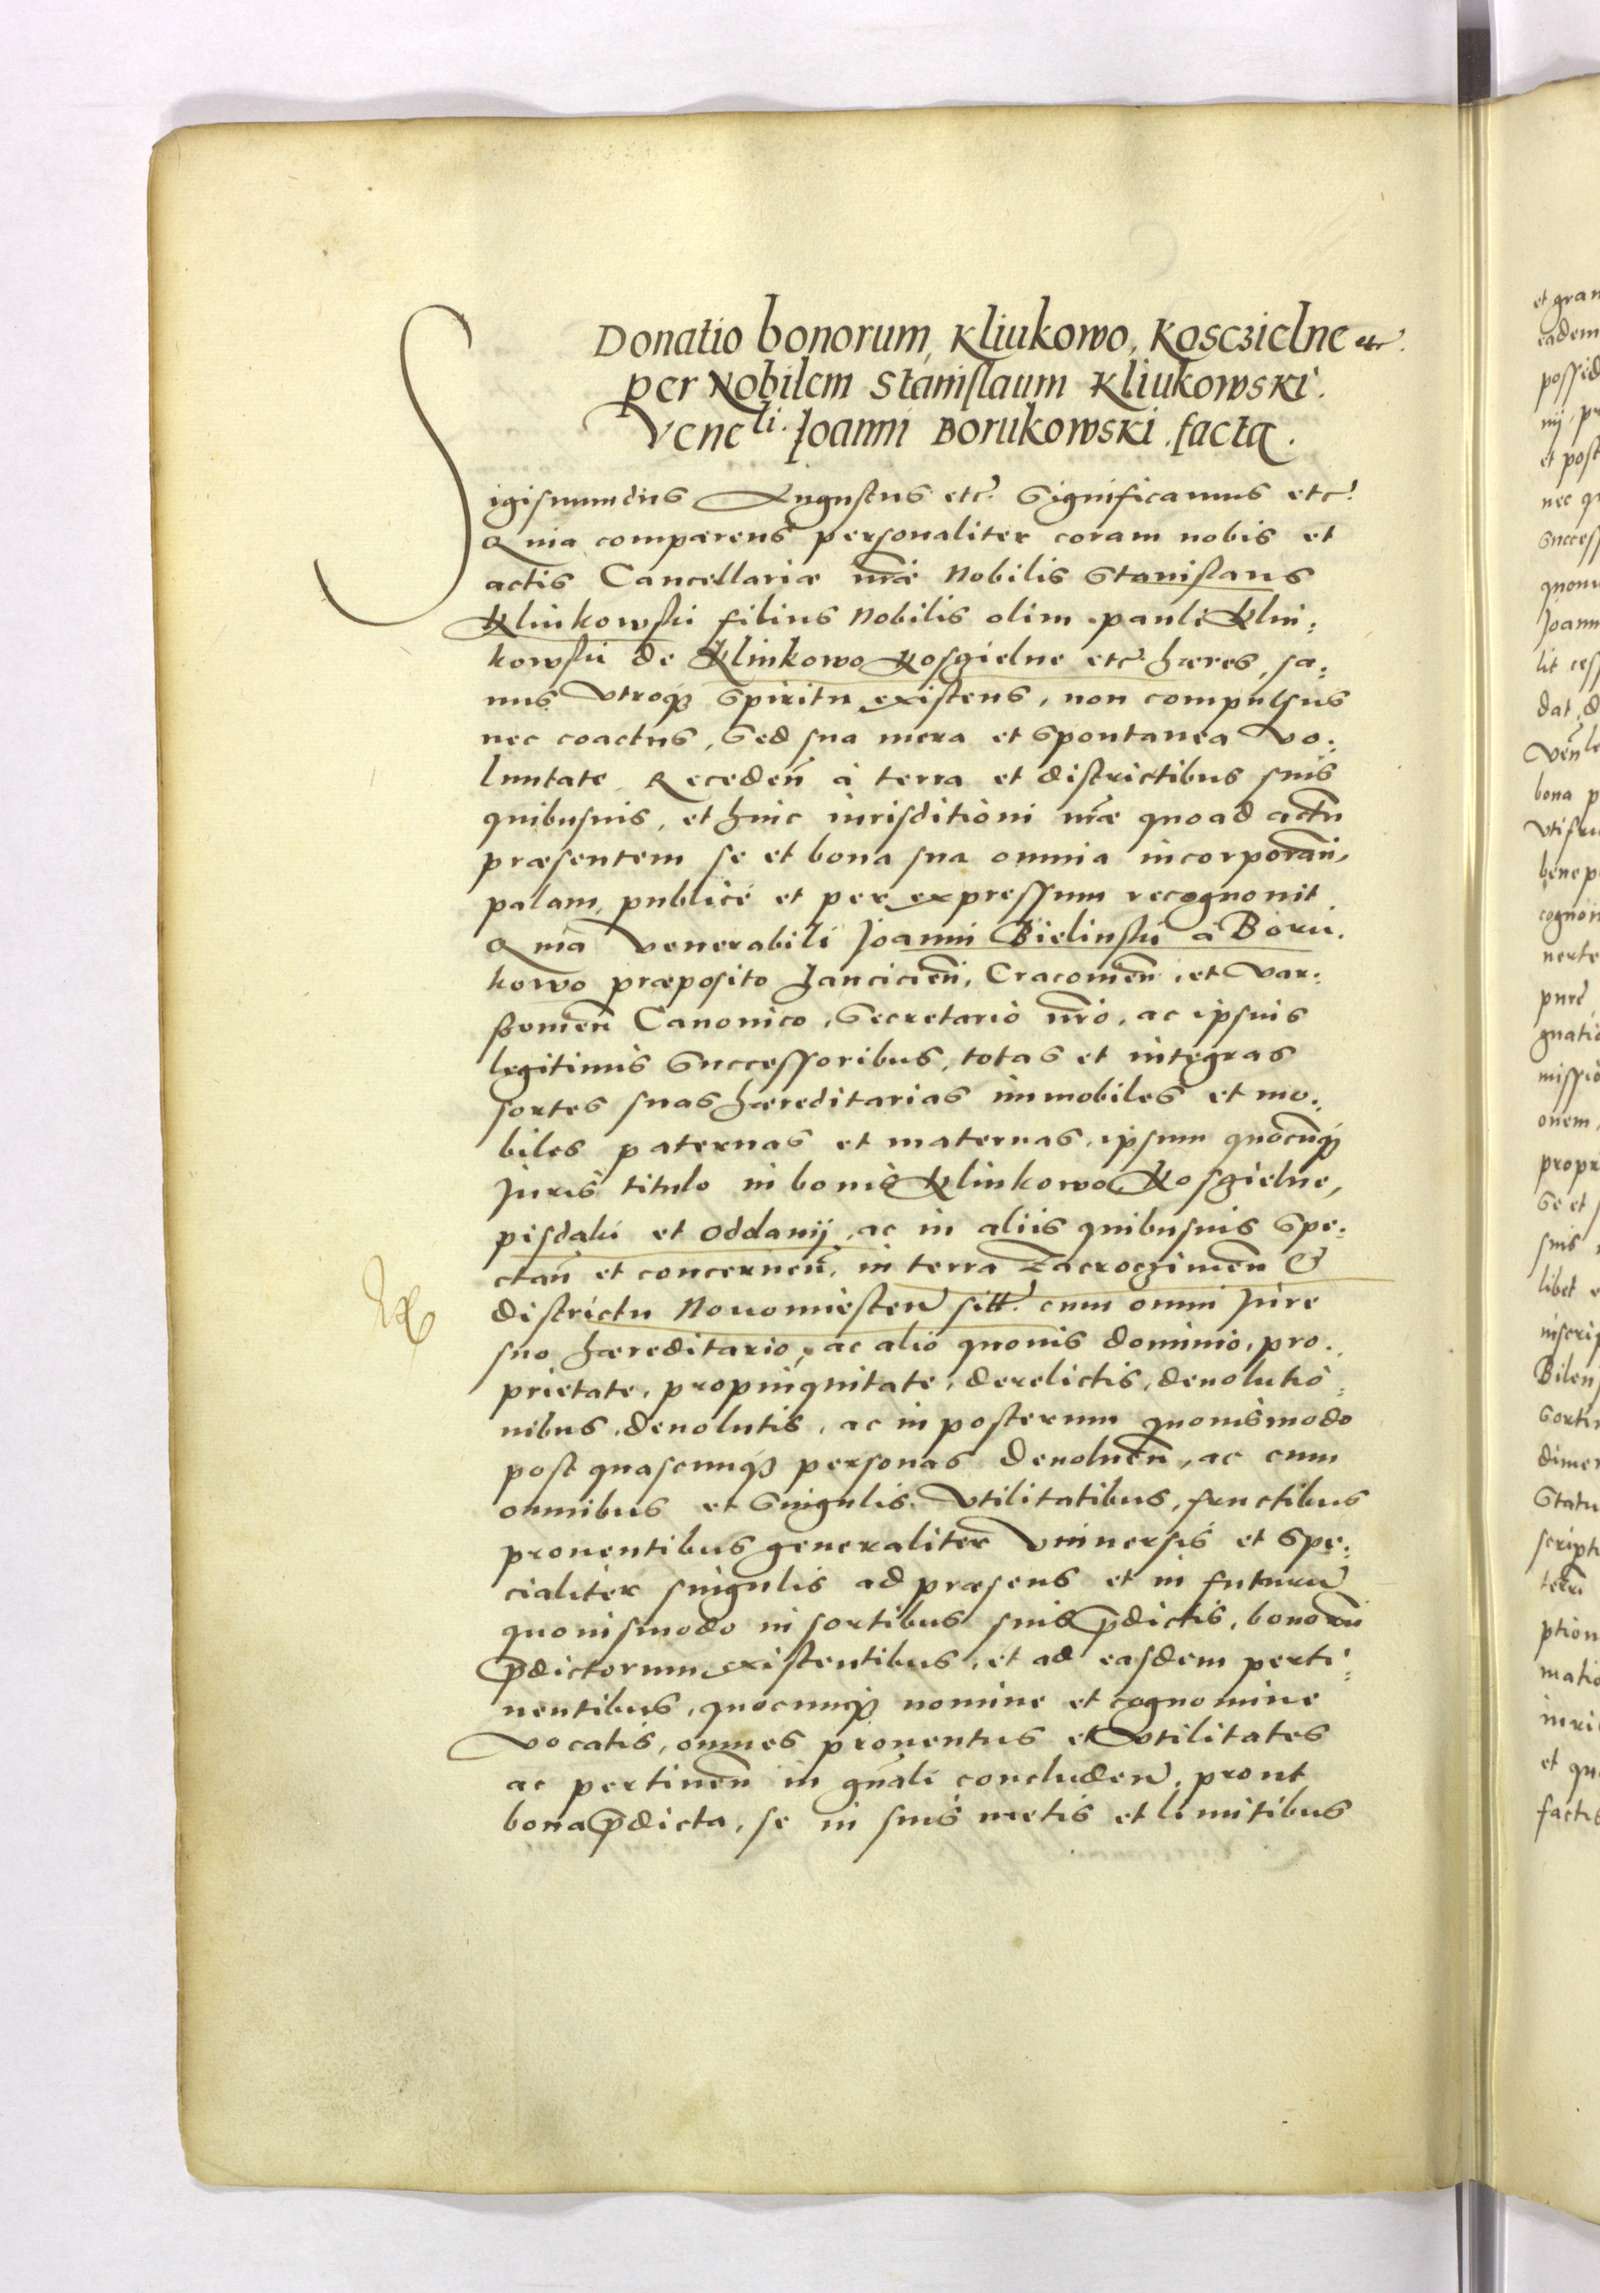 Donatio bonorum Kliukowo, Kosczielne etc.
per Nobilem Stanislaum Kliukowski.
Veneli. Joanni Borukowski. facta.
Sigismundus Augustus etc. Significamus etc.
Quia comparens personaliter coram nobis et
actis Cancellariæ nræ Nobilis Stanislaus
Kliukowski filius Nobilis olim pauli Kliu:
kowski de Kliukowo Kosczielne etc. hæres, sa:
nus Vtroq3 Spiritu existens, non compulsus
nec coactus, Sed sua mera et Spontanea Vo:
luntate Receden à terra et districtibus suis
quibusuis, et huic iurisditioni nræ quoad actu
præsentem se et bona sua omnia incorporan,
palam, publicé et per expressum recognouit
Quia Venerabili Joanni Bielinski à Boru:
kowo præposito Lancicien, Cracouien, et Var:
souien Canonico, Secretario nro, ac ipsius
legitimis Successoribus, totas et integras
sortes suas hæreditarias immobiles et mo:
biles paternas et maternas, ipsum quocunq3
Juris titulo in bonis Kliukowo Kosczielne,
pisdaki et Oddanij, ac in aliis quibusuis Spe:
ctan et concernen, in terra Zacroczimen &
districtu Nouomiesten sitt. cum omni Jure
suo hæreditario, ac alio quouis dominio, pro:
prietate, propinquitate, derelictis, deuolutio:
nibus, deuolutis, ac in posterum quouismodo
post quascunq3 personas deuoluen, ac cum
omnibus et Singulis Vtilitatibus, fructibus
prouentibus generaliter Vniuersis et Spe:
cialiter singulis ad præsens et in futuru
quouismodo in sortibus suis pdictis, bonoru
pdictorum existentibus, et ad easdem perti:
nentibus, quocunq3 nomine et cognomine
Vocatis, omnes prouentus et Vtilitates
ac pertinen in gnali concluden, prout
bona pdicta, se in suis metis et limitibus